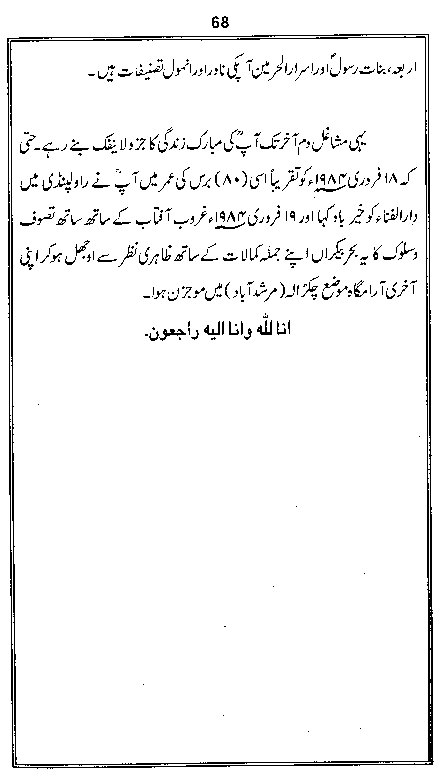 68
اربعہ، بنات رسولؐ اور اسرار الحرمین آپکی نادر اور انمول تصنیفات ہیں۔
یہی مشاغل دم آخر تک آپؒ کی مبارک زندگی کا جزو لاینفک بنے رہے۔ حتی
کہ ۱۸ فروری ۱۹۸۴ء کو تقریباً اسی (۸۰) برس کی عمر میں آپؒ نے راولپنڈی میں
دارالفناء کو خیر باد کہا اور ۱۹ فروری ۱۹۸۴ء غروب آفتاب کے ساتھ ساتھ تصوف
وسلوک کا یہ بحر بیکراں اپنے جملہ کمالات کے ساتھ ظاہری نظر سے اوجھل ہو کر اپنی
آخری آرامگاہ موضع چکڑالہ (مرشد آباد) میں موجزن ہوا۔
انا للہ وانا الیہ راجعون۔